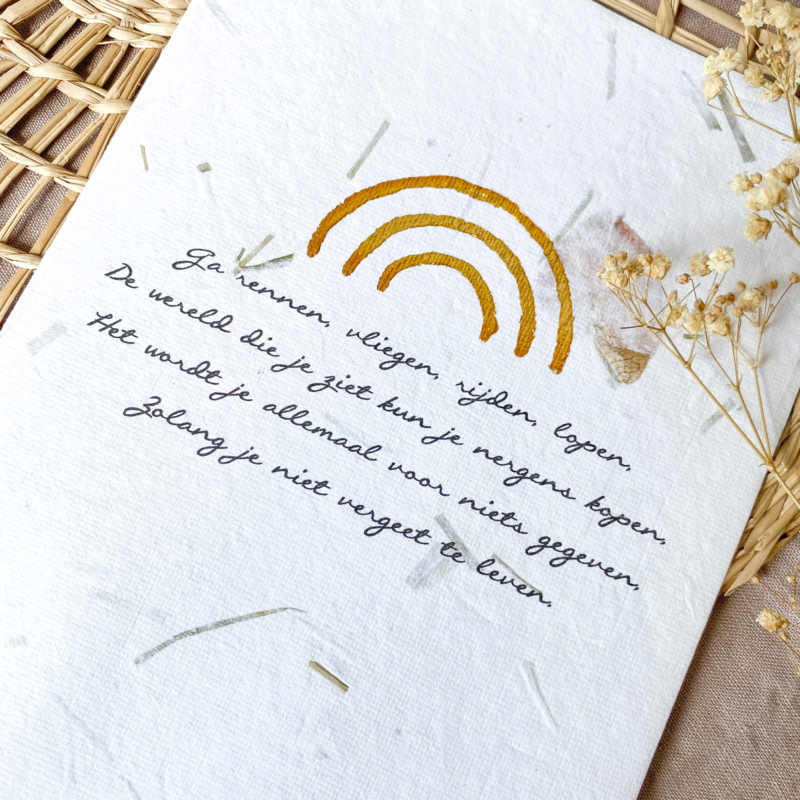 Ga rennen, vliegen, rijden, lopen,
De wereld die je ziet kun je nergens kopen,
Het wordt je allemaal voor niets gegeven,
Zolang je niet vergeet te leven.